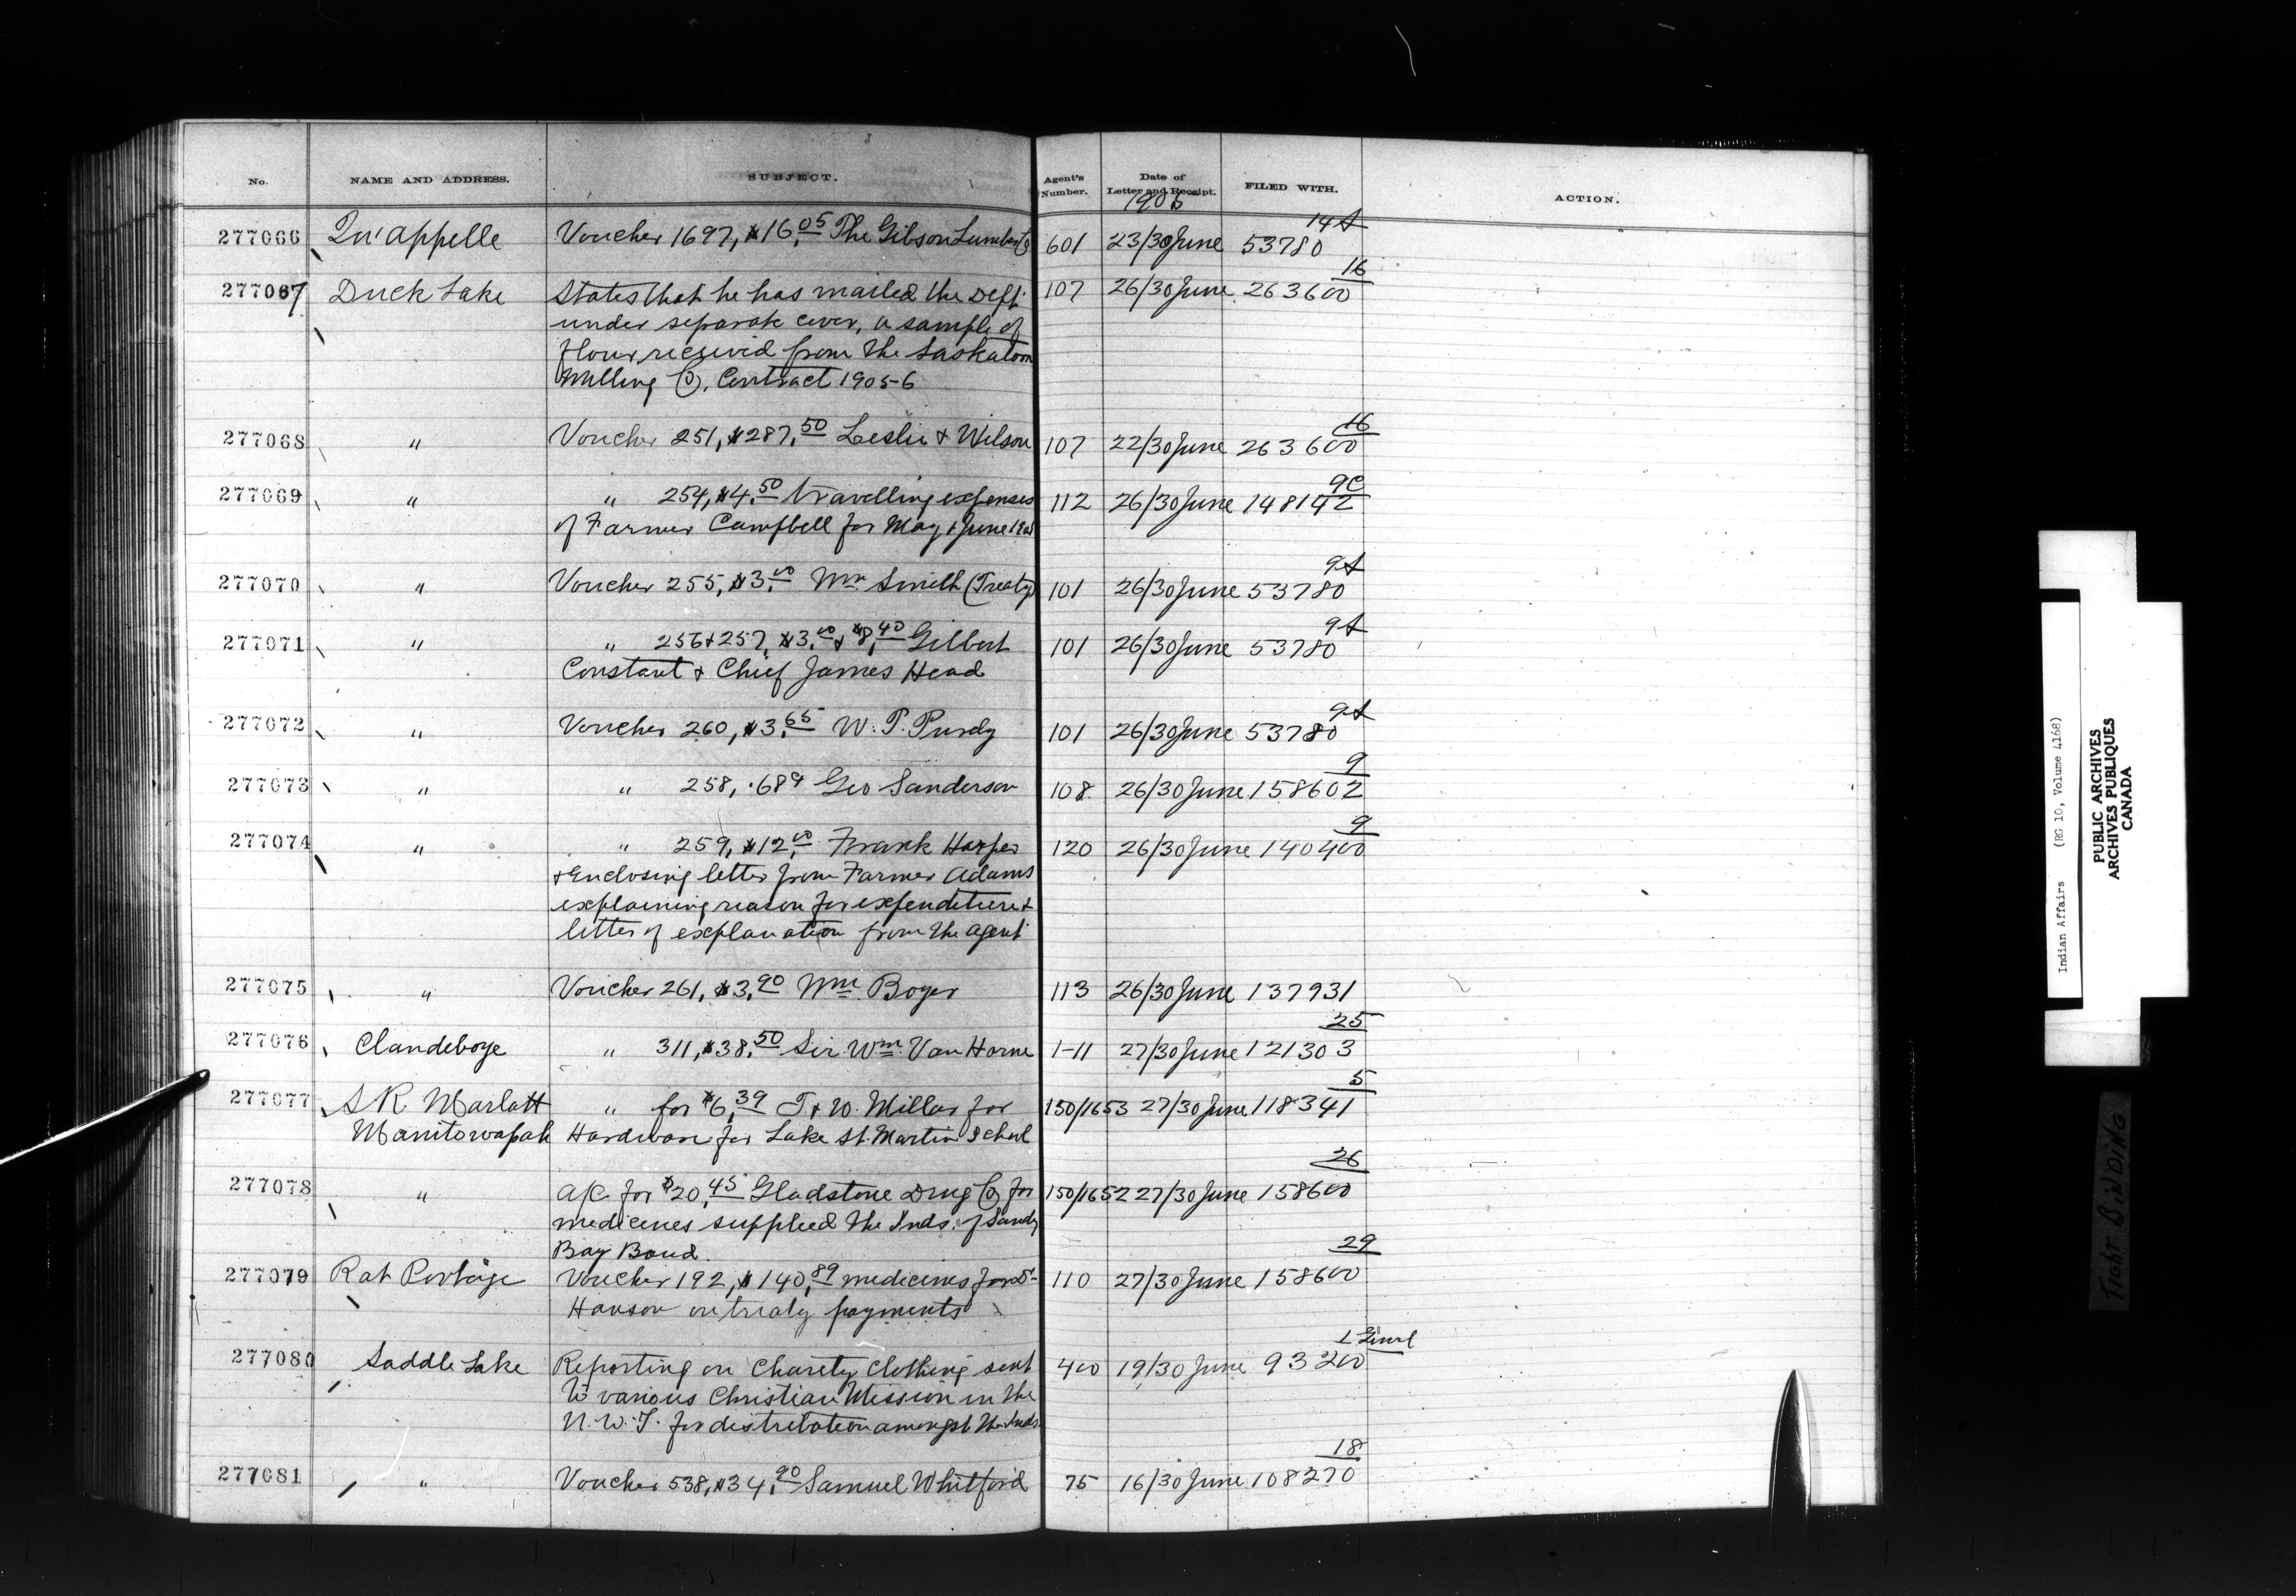 No. NAME AND ADDRESS. SUBJECT. Agent's Number. Date of Letter and Receipt. FILED WITH. ACTION.
1905
14A
277066 Qu'appelle Voucher 1697, $16.05 The Gibson Lumber Co 601 23/30 June 53780
16
277067 Duck Lake States that he has mailed the Dept. 107 26/30 June 263600
under separate cover, a sample of
flour received from the Saskatoon
Milling Co, Contract 1905-6
16
277068 " Voucher 251, $287.50 Leslie & Wilson 107 22/30 June 263600
9C
277069 " " 254, $4.50 travelling expenses 112 26/30 June 148142
of Farmer Campbell for May & June 1905
9A
277070 " Voucher 255, $3.00 Wm Smith (Treaty) 101 26/30 June 53780
9A
277071 " " 256 & 257, $3.00 & $8.40 Gilbert 101 26/30 June 53780
Constant & Chief James Head
9A
277072 " Voucher 260, $3.65 W. T. Purdy 101 26/30 June 53780
9
277073 " " 258, .68 Geo Sanderson 108 26/30 June 158602
9
277074 " " 259, $12.00 Frank Harper 120 26/30 June 140400
& Enclosing letter from Farmer Adams
explaining reason for expenditure &
letter of explanation from the agent
277075 " Voucher 261, $3.90 Wm Boyer 113 26/30 June 137931
25
277076 Clandeboye " 311, $38.50 Sir Wm. Van Horne 1-11 27/30 June 121303
5
277077 S R Marlatt " for $6.39 T & W. Millar for 150/1653 27/30 June 118341
Manitowapah Hardware for Lake St. Martin School
26
277078 " a/c for $20.45 Gladstone Drug Co for 150/1652 27/30 June 158600
medicines supplied the Inds. of Sandy
Bay Band.
29
277079 Rat Portage Voucher 192, $140.89 medicines for Dr 110 27/30 June 158600
Hanson on treaty payments
1
277080 Saddle Lake Reporting on Charity Clothing sent 400 19/30 June 93200
to various Christian Mission in the
N. W. T. for distribution amongst the Inds.
18
277081 " Voucher 538, $34.90 Samuel Whitford 75 16/30 June 108270
Indian Affairs (RG 10, Volume 4168)
PUBLIC ARCHIVES
ARCHIVES PUBLIQUES
CANADA
TIGHT BINDING